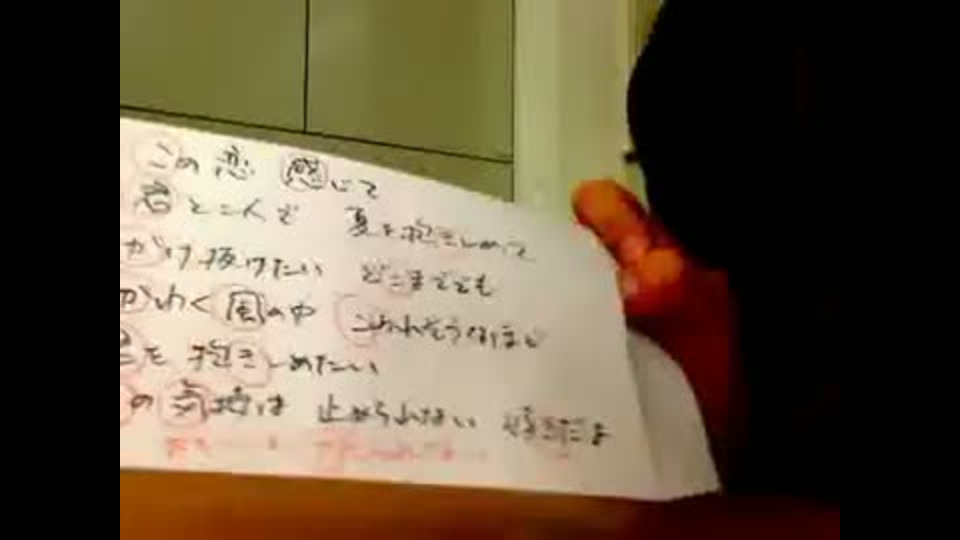 この恋 感じて
君と二人で 夏を抱きしめて
かけ抜けたい どこまででも
かわく風の中 こわれそうなほど
君を 抱きしめたい
の気持は 止められない